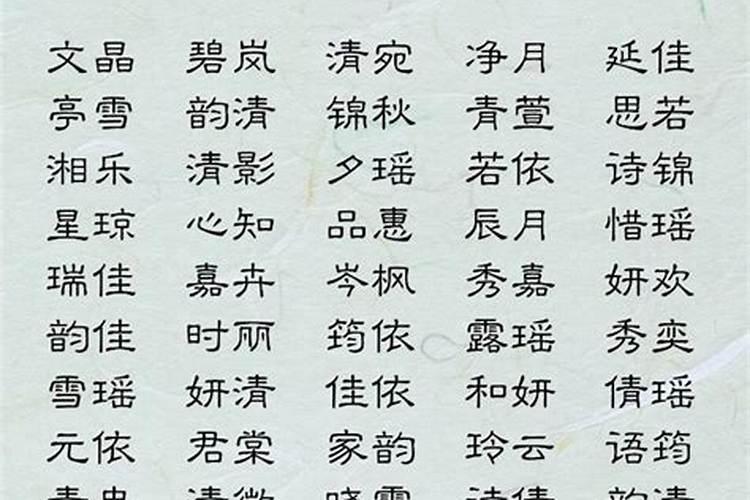 文晶 碧岚 清宛 净月 延佳
亭雪 韵清 锦秋 青萱 思若
湘乐 清影 夕瑶 若依 诗锦
星琼 心知 品惠 辰月 惜瑶
瑞佳 嘉卉 岑枫 秀嘉 妍欢
韵佳 时丽 筠依 露瑶 秀奕
雪瑶 妍清 佳依 和妍 倩瑶
元依 君棠 家韵 玲云 语筠